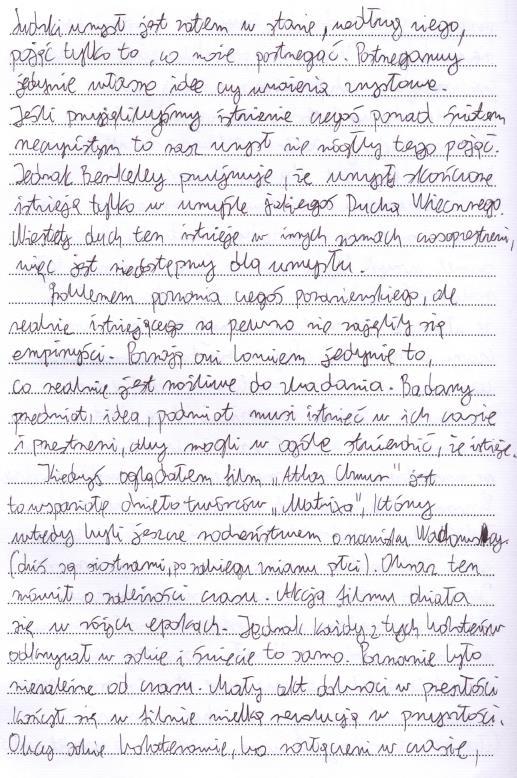 Ludzki umysł jest zatem w stanie, według niego,
pojąć tylko to, co może postrzegać. Postrzegamy
jedynie własne idee czy wrażenia zmysłowe.
Jeśli przyjęlibyśmy istnienie czegoś ponad światem
rzeczywistym to nasz umysł nie mógłby tego pojąć.
Jednak Berkeley przyjmuje, że umysły skończone
istnieją tylko w umyśle jakiegoś Ducha Wiecznego.
Niestety duch ten istnieje w innych ramach czasoprzestrzeni,
więc jest niedostępny dla umysłu.
Problemem poznania czegoś pozaziemskiego, ale
realnie istniejącego na pewno nie zajęliby się
empiryści. Poznają oni bowiem jedynie to,
co realnie jest możliwe do zbadania. Badany
przedmiot, idea, podmiot musi istnieć w ich czasie
i przestrzeni, aby mogli w ogóle stwierdzić, że istnieje.
Kiedyś oglądałem film „Atlas Chmur" jest
to wspaniałe dzieło twórców „Matrixa", którzy
wtedy byli jeszcze rodzeństwem o nazwisku
(dziś są siostrami, po zabiegu zmiany płci). Obraz ten
mówił o zależności czasu. Akcja filmu działa
się w różych epokach. Jednak każdy z tych bohaterów
odkrywał w sobie i świecie to samo. Poznanie było
niezależne od czasu. Mały akt dobroci w przeszłości
kończył się w filmie wielką rewolucją w przyszłości.
Obcy sobie bohaterowie, bo rozłączeni w czasie,